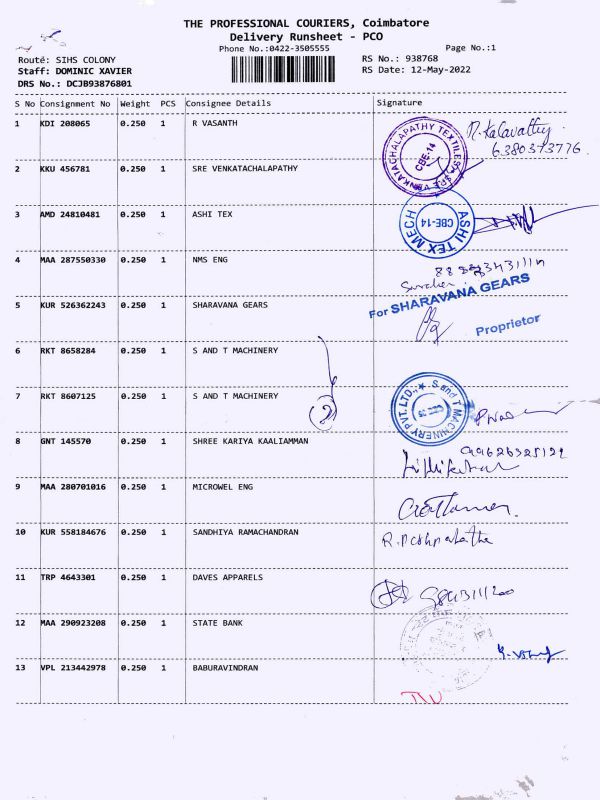 THE PROFESSIONAL COURIERS, Coimbatore
Delivery Runsheet - PCO
Phone No.:0422-3505555
Page No.:1
Route: SIHS COLONY
RS No.: 938768
Staff: DOMINIC XAVIER
RS Date: 12-May-2022
DRS No.: DCJB93876801
S No Consignment No Weight PCS Consignee Details Signature
1 KDI 208065 0.250 1 R VASANTH
6380373776
2 KKU 456781 0.250 1 SRE VENKATACHALAPATHY
SRE VENKATACHALAPATHY TEXTILES
CBE-14
3 AMD 24810481 0.250 1 ASHI TEX
ASHI TEX MECH
CBE-14
4 MAA 287550330 0.250 1 NMS ENG
5 KUR 526362243 0.250 1 SHARAVANA GEARS
For SHARAVANA GEARS
Proprietor
6 RKT 8658284 0.250 1 S AND T MACHINERY
7 RKT 8607125 0.250 1 S AND T MACHINERY
2
S and T MACHINERY PVT. LTD.,
8 GNT 145570 0.250 1 SHREE KARIYA KAALIAMMAN
9 MAA 280701016 0.250 1 MICROWEL ENG
10 KUR 558184676 0.250 1 SANDHIYA RAMACHANDRAN
11 TRP 4643301 0.250 1 DAVES APPARELS
12 MAA 290923208 0.250 1 STATE BANK
13 VPL 213442978 0.250 1 BABURAVINDRAN